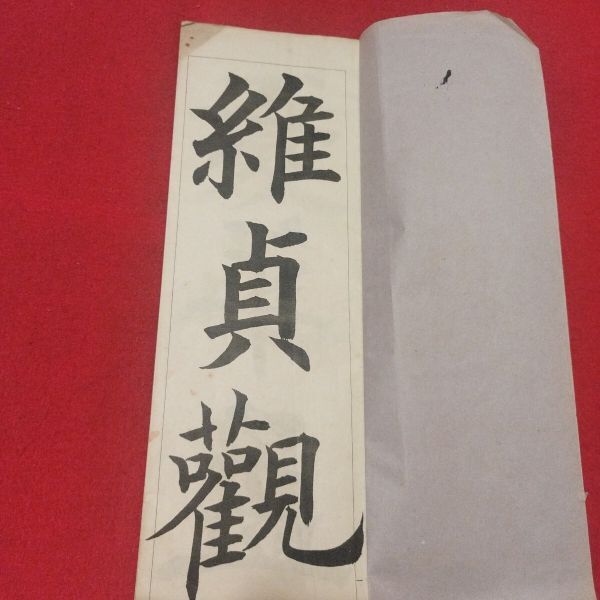 維貞觀